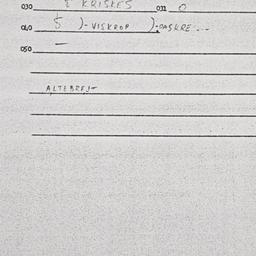 030 & KRISKES 031 O
040 $ )-VISKROP )-OASKRE...
050 —
ALTEBREJ-